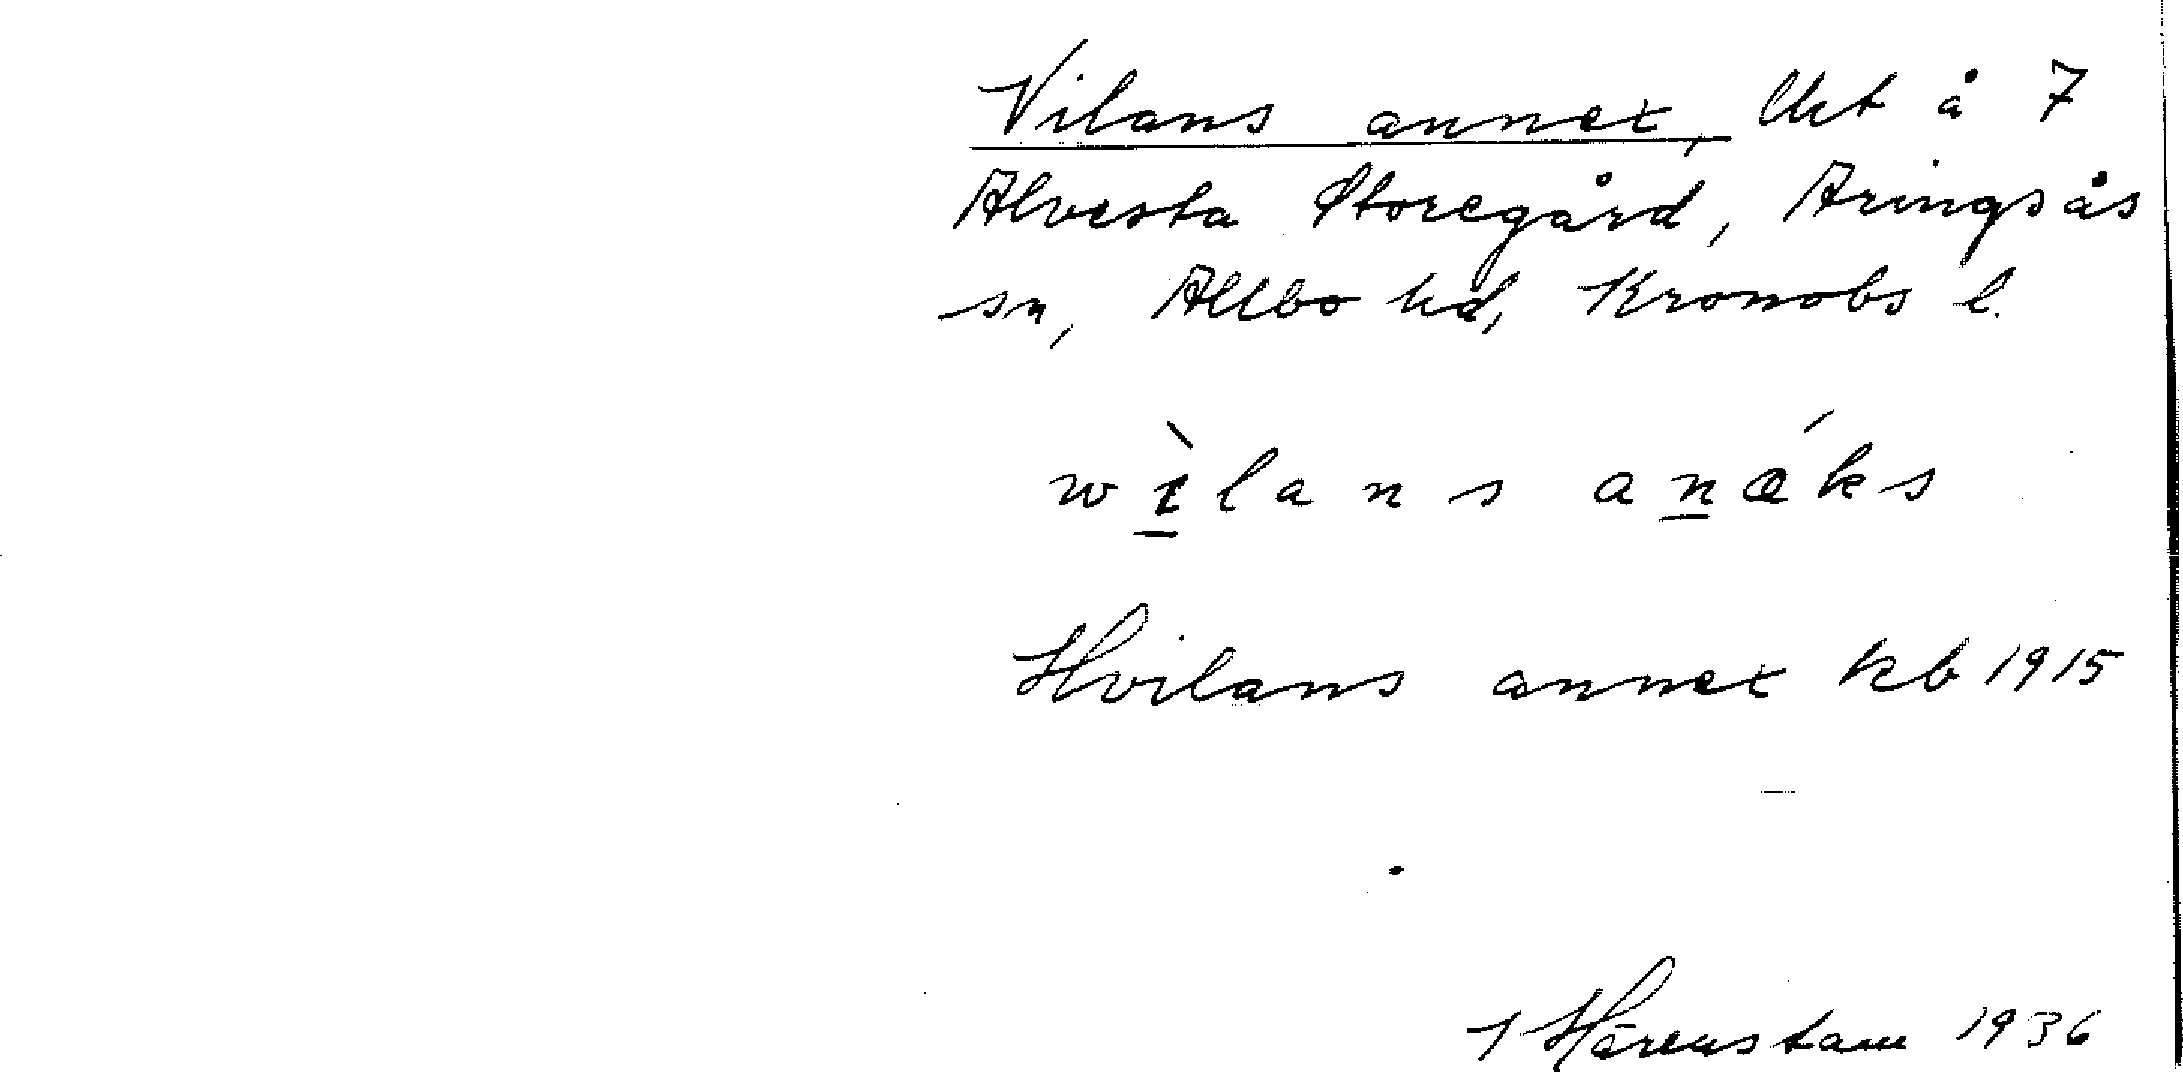 Vilans annex, lht å 7
Alvesta Storegård, Aringsås
sn, Allbo hd, Kronobs l.
wìlans anáks
Hvilans annex kb 1915
I Hårenstam 1936